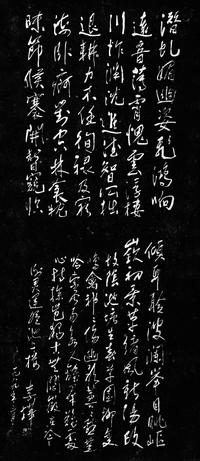 潜虬媚幽姿飛鴻响
遠音薄霄愧雲浮棲
川怍淵沉進德智所拙
退耕力不任徇禄及窮
海卧疴對空林衾枕
昧節候褰開暫窺臨
傾耳聆波瀾舉目眺岖
嶔初景革緒風新陽改
故陰池塘生春草園柳變
鳴禽祁祁傷豳歌萋萋感楚
吟索居易永久離群難處
心持操豈獨古無悶徵在今